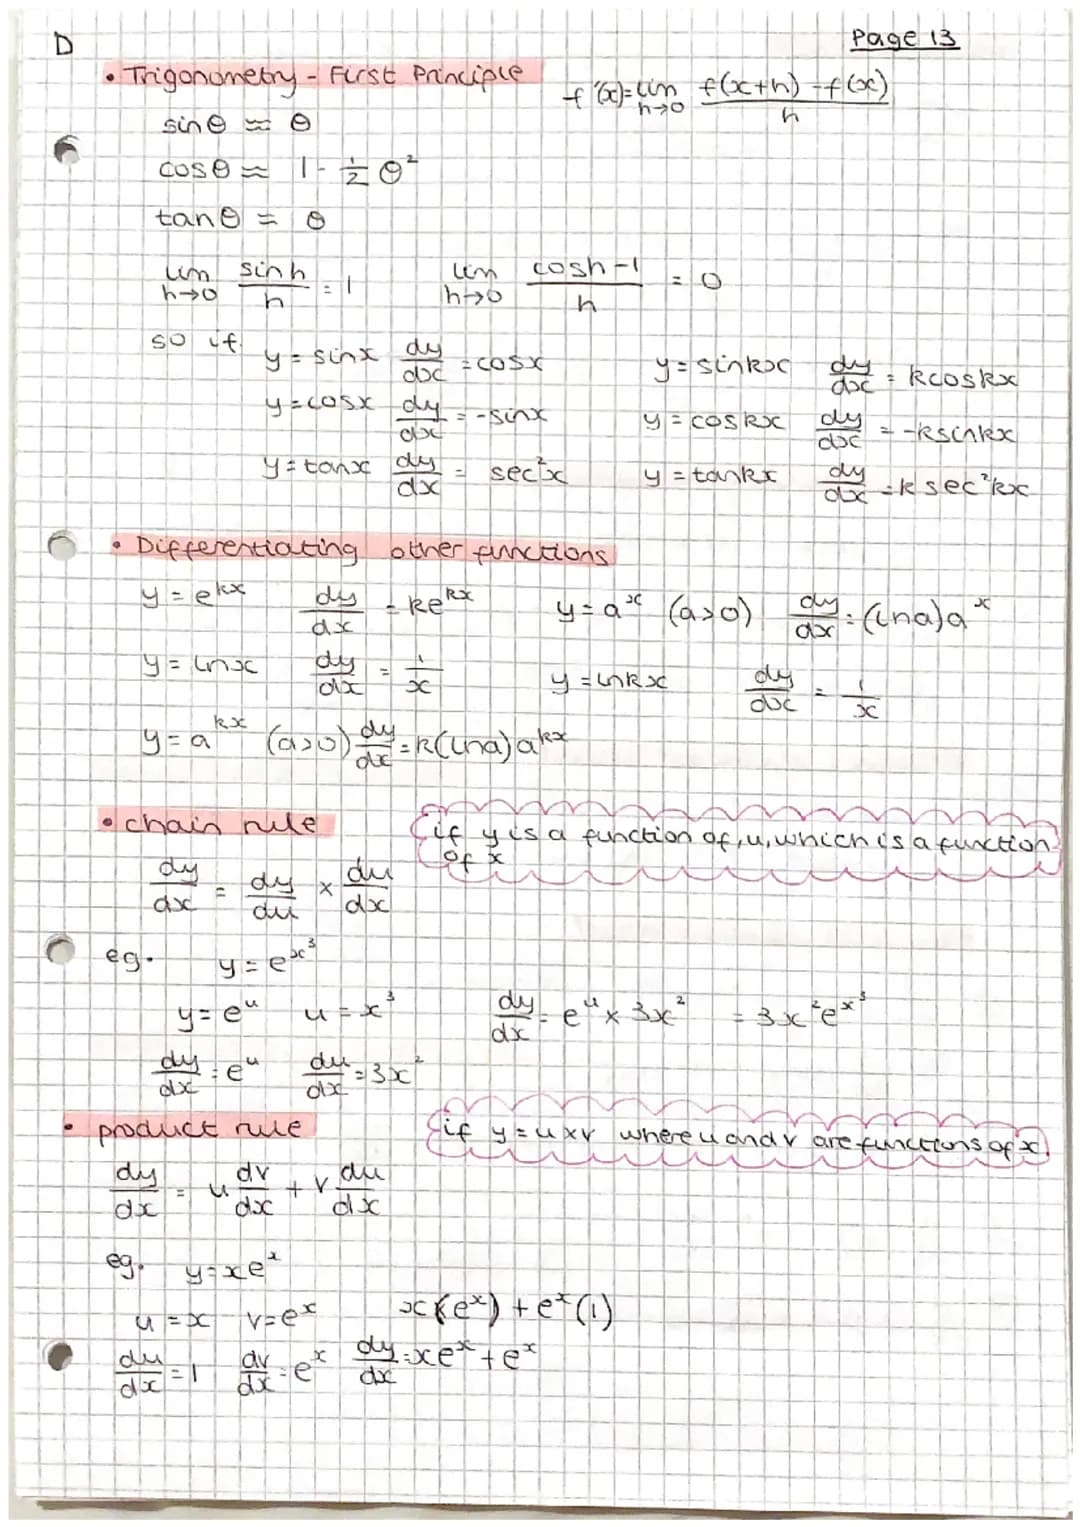 D Page 13
• Trigonometry - First Principle f'(x)= lim h→0 f(x+h) - f(x) / h
sinθ ≈ θ
cosθ ≈ 1 - ½θ²
tanθ ≈ θ
lim h→0 sinh / h = 1 lim h→0 cosh-1 / h = 0
so if y = sinx dy/dx = cosx y = sinkx dy/dx = kcoskx
y = cosx dy/dx = -sinx y = coskx dy/dx = -ksinkx
y = tanx dy/dx = sec²x y = tankx dy/dx = k sec²kx
• Differentiating other functions
y = e^kx dy/dx = ke^kx y = a^x (a>0) dy/dx = (lna)a^x
y = lnx dy/dx = 1/x y = lnkx dy/dx = 1/x
y = a^kx (a>0) dy/dx = k(lna)a^kx
• chain rule if y is a function of, u, which is a function
of x
dy/dx = dy/du × du/dx
eg. y = e^x³
y = e^u u = x³ dy/dx = e^u × 3x² = 3x²e^x³
dy/dx = e^u du/dx = 3x²
• product rule if y = u×v where u and v are functions of x.
dy/dx = u dv/dx + v du/dx
eg. y = xe^x
u = x v = e^x x(e^x) + e^x(1)
du/dx = 1 dv/dx = e^x dy/dx = xe^x + e^x